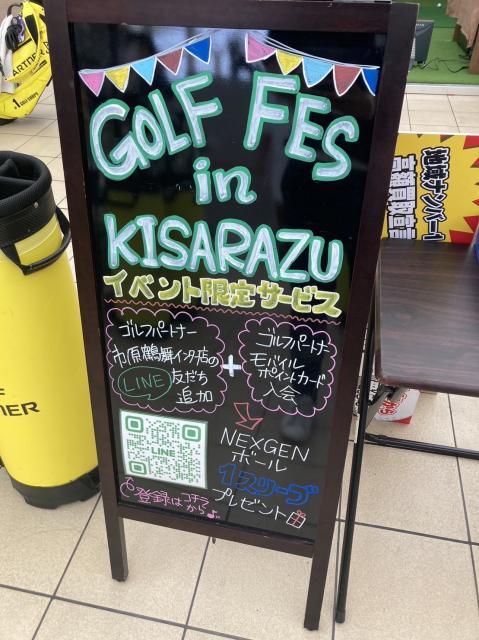 GOLF FES
in
KISARAZU
イベント限定サービス
ゴルフパートナー
市原鶴舞インター店の
LINE 友だち
追加
+
ゴルフパートナー
モバイル
ポイントカード
入会
NEXGEN
ボール
1スリーブ
プレゼント
LINE
登録はコチラから♪
地域ナンバー1
高額買取宣言